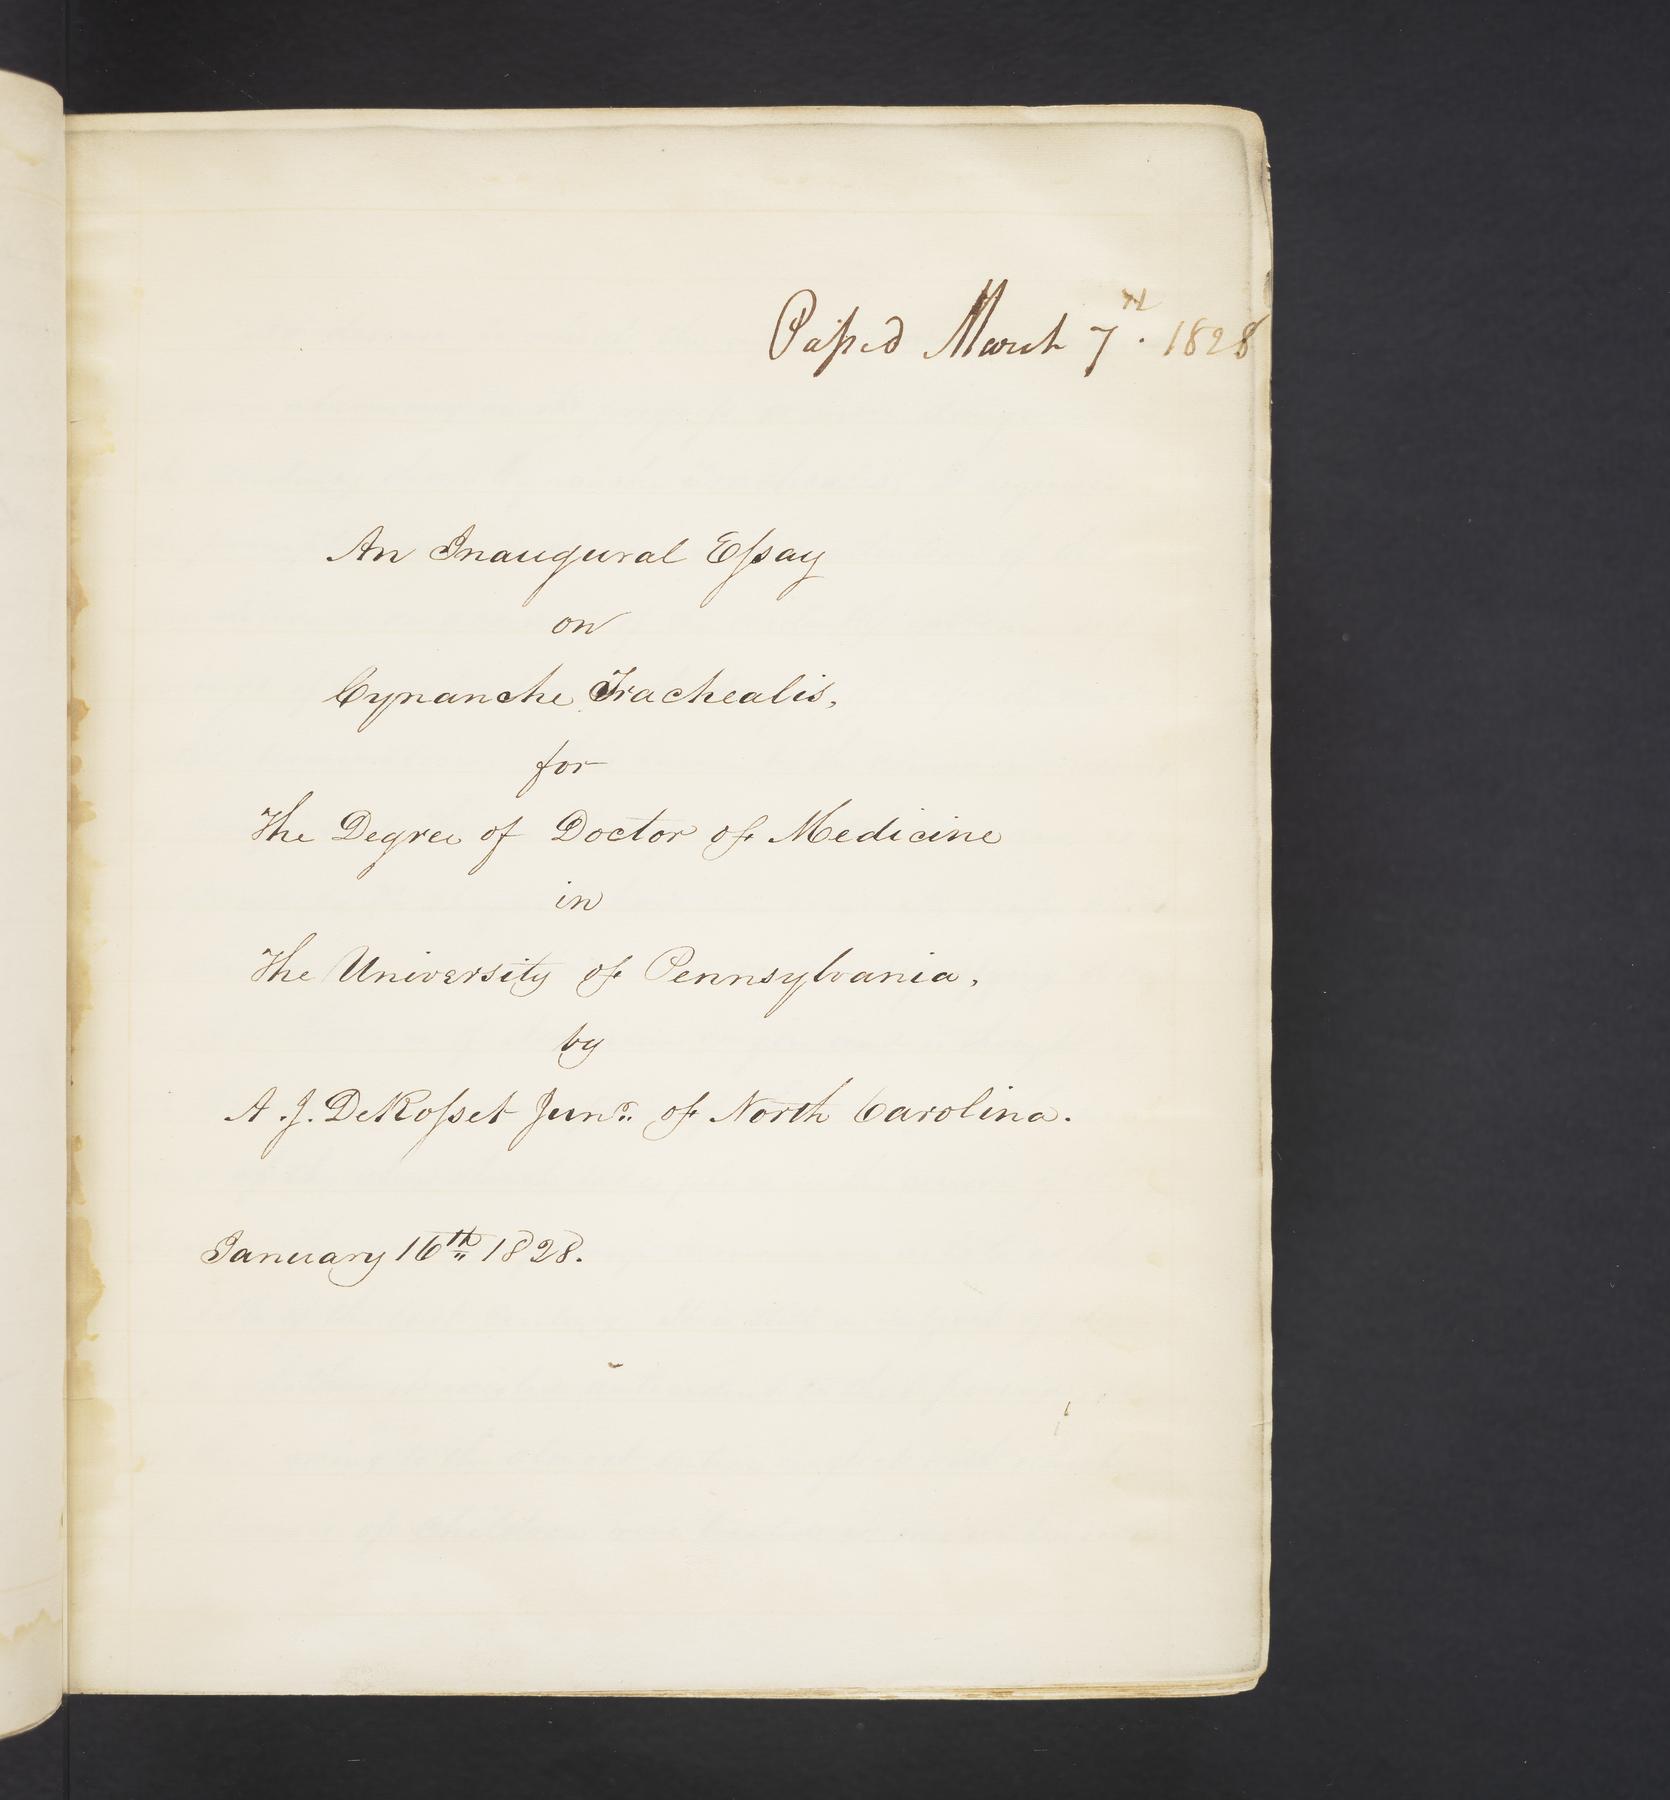 Passed March 7th. 1828
An Inaugural Essay
on
Cynanche Trachealis,
for
The Degree of Doctor of Medicine
in
The University of Pennsylvania,
by
A. J. DeRosset Junr. of North Carolina.
January 16th 1828.